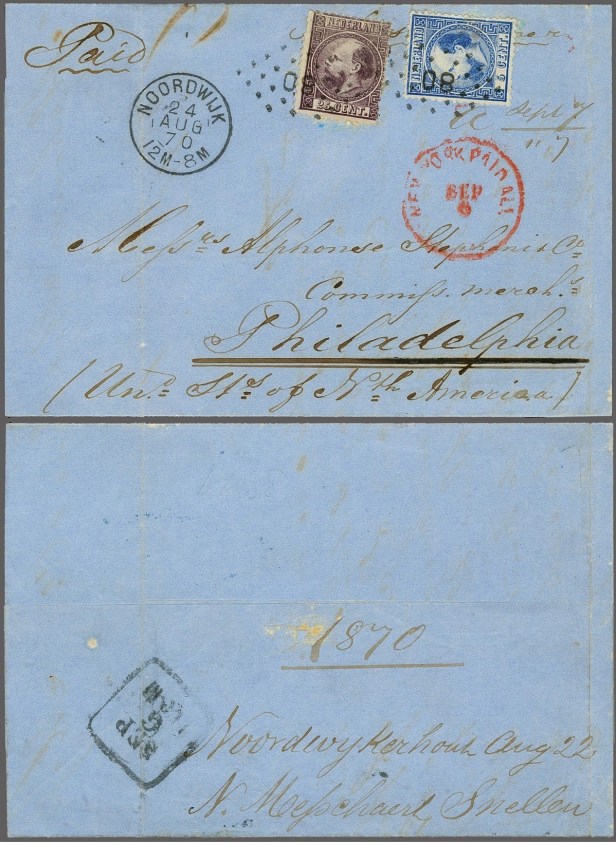 Paid
NEDERLAND
25 CENT.
NEDERLAND
5 CENT
08
08
NOORDWIJK
24
AUG
70
12M-8M
Sept 7
NEW YORK PAID ALL
SEP
6
Messrs Alphonse Stephani & Co
Commiss. merchts
Philadelphia
(Und. Sts. of Nth America)
1870
SEP
Noordwykerhout Aug 22
N. Messchaert Snellen